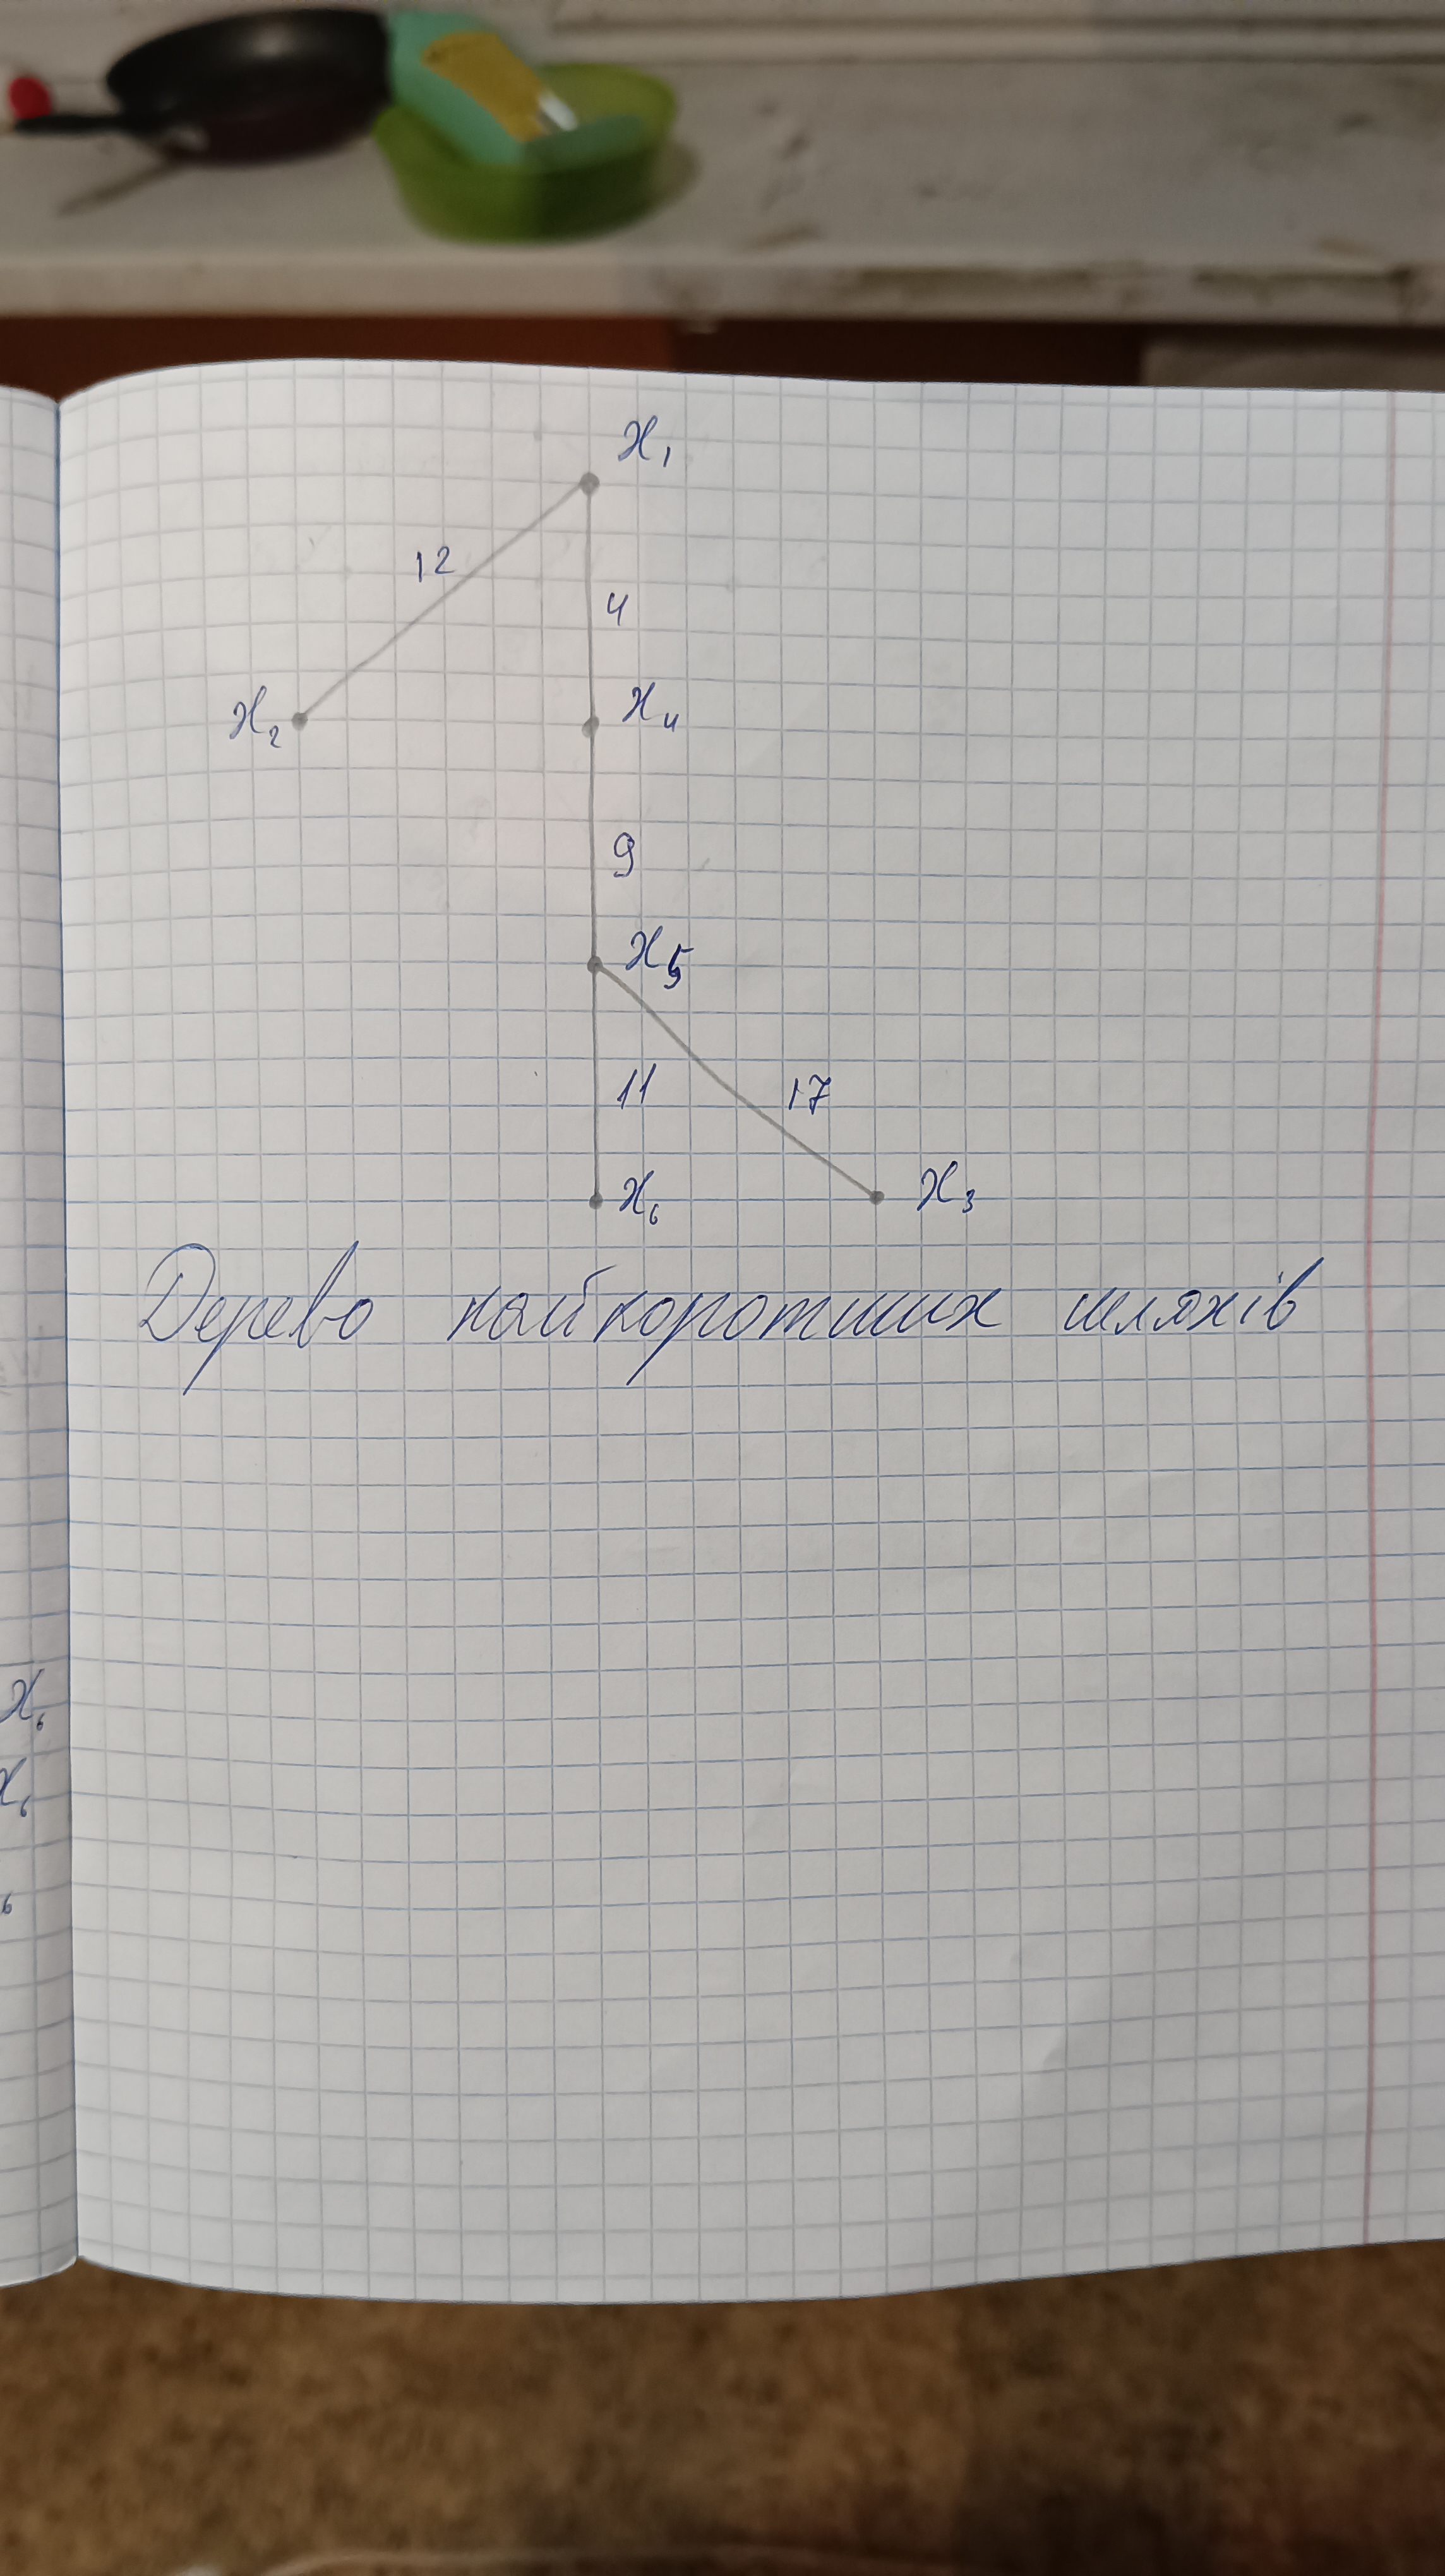 x₁
12
4
x₂
x₄
9
x₅
11
17
x₆
x₃
Дерево найкоротших шляхів
x₆
x₆
₆